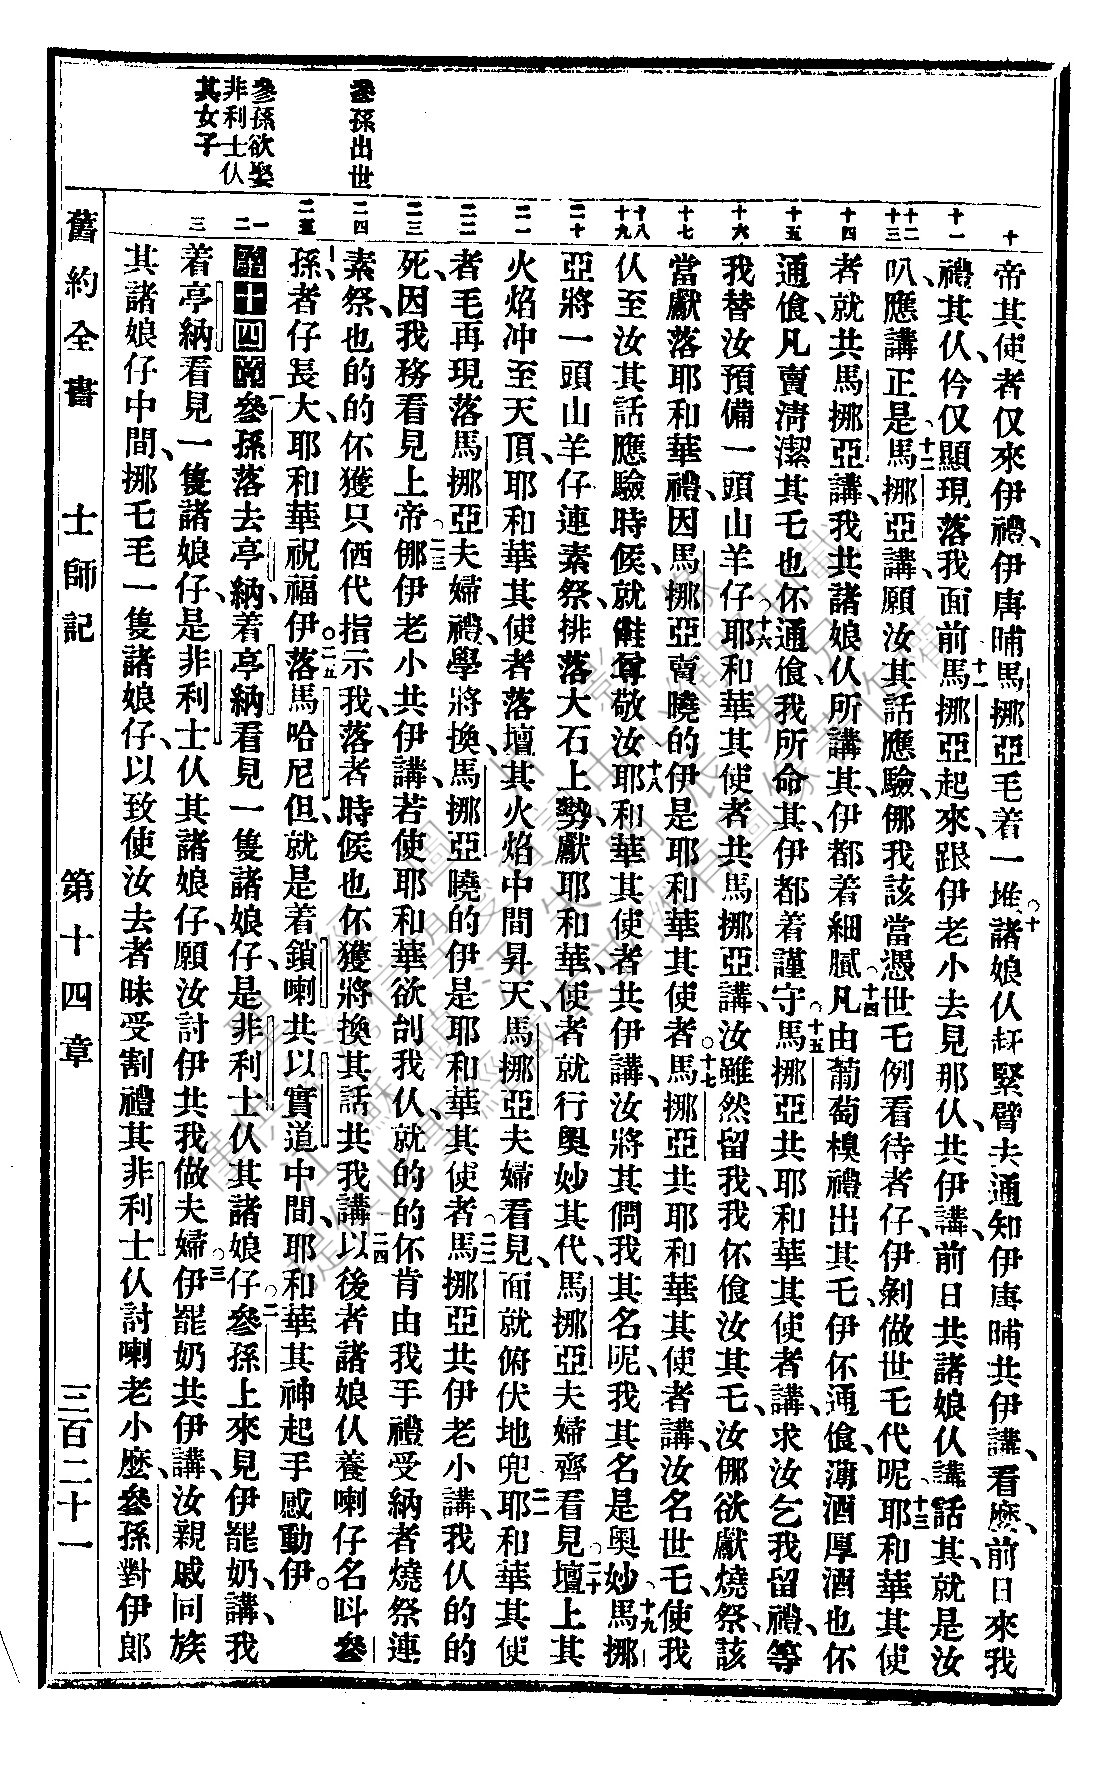 帝其使者仅來伊禮、伊唐晡馬挪亞毛着一堆、○十諸娘仈趕緊劈去通知伊唐晡共伊講、看麽、前日來我
禮其仈、仱仅顯現落我面前、十一馬挪亞起來、跟伊老小去見那仈、共伊講、前日共諸娘仈講話其、就是汝
叭、應講正是、十二馬挪亞講、願汝其話應驗、㑚我該當憑世乇例看待者仔、伊剝做世乇代呢、十三耶和華其使
者就共馬挪亞講、我共諸娘仈所講其、伊都着細膩、十四凡由葡萄樤禮出其乇、伊伓通飡、薄酒厚酒也伓
通飡、凡賣清潔其乇也伓通飡、我所命其、伊都着謹守、○十五馬挪亞共耶和華其使者講、求汝乞我留禮、等
我替汝預備一頭山羊仔、○十六耶和華其使者共馬挪亞講、汝雖然留我、我伓飡汝其乇、汝㑚欲獻燒祭、該
當獻落耶和華禮、因馬挪亞賣曉的伊是耶和華其使者、○十七馬挪亞共耶和華其使者講、汝名世乇、使我
仈至汝其話應驗時候、就會尊敬汝、十八耶和華其使者共伊講、汝將其問我其名呢、我其名是奧妙、十九馬挪
亞將一頭山羊仔連素祭、排落大石上勢、獻耶和華、使者就行奧妙其代、馬挪亞夫婦齊看見、○二十壇上其
火焰冲至天頂、耶和華其使者落壇其火焰中間昇天、馬挪亞夫婦看見、面就俯伏地兜、二一耶和華其使
者毛再現落馬挪亞夫婦禮、學將換、馬挪亞曉的伊是耶和華其使者、○二二馬挪亞共伊老小講、我仈的的
死、因我務看見上帝、○二三㑚伊老小共伊講、若使耶和華欲刣我仈、就的的伓肯由我手禮受納者燒祭連
素祭、也的的伓獲只仱代指示我、落者時候也伓獲將換其話共我講、二四以後者諸娘仈養喇仔名呌參
孫、者仔長大、耶和華祝福伊、○二五落馬哈尼但、就是着鎖喇共以實道中間、耶和華其神起手感動伊。
第十四章 一參孫落去亭納、着亭納看見一隻諸娘仔、是非利士仈其諸娘仔、○二參孫上來見伊罷奶講、我
着亭納看見一隻諸娘仔、是非利士仈其諸娘仔、願汝討伊共我做夫婦、○三伊罷奶共伊講、汝親戚同族
其諸娘仔中間、挪乇毛一隻諸娘仔、以致使汝去者昧受割禮其非利士仈討喇老小麽、參孫對伊郎
十
十一
十二
十三
十四
十五
十六
十七
十八
十九
二十
二一
二二
二三
二四
二五
一
二
三
參孫出世
參孫欲娶
非利士仈
其女子
舊約全書 士師記 第十四章 三百二十一